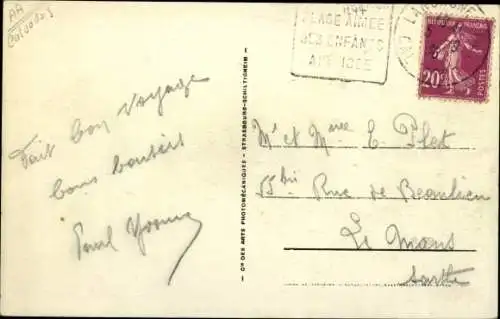 AA
Calvados
PLAGE AIMÉE
DES ENFANTS
RÉPUBLIQUE FRANÇAISE
20c
POSTES
Fait bon voyage
bons baisers
Paul Yvonne
Cie DES ARTS PHOTOMÉCANIQUES - STRASBOURG-SCHILTIGHEIM
Mr et Mme E. Plet
55 bis Rue de Beaulieu
Le Mans
Sarthe